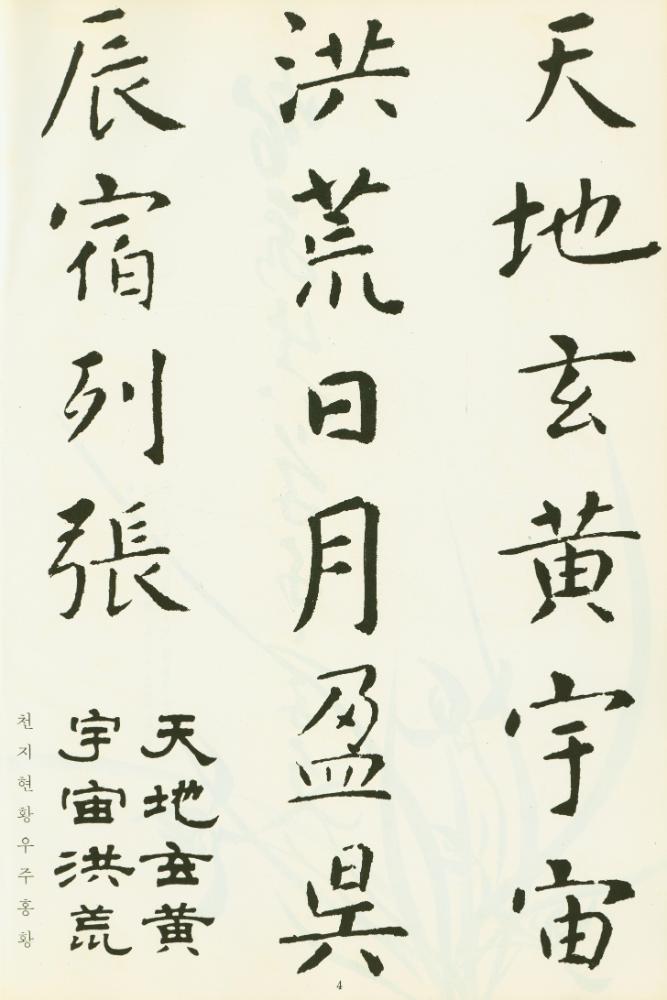 天地玄黄宇宙
洪荒日月盈昃
辰宿列張
天地玄黄
宇宙洪荒
천지현황우주홍황
4